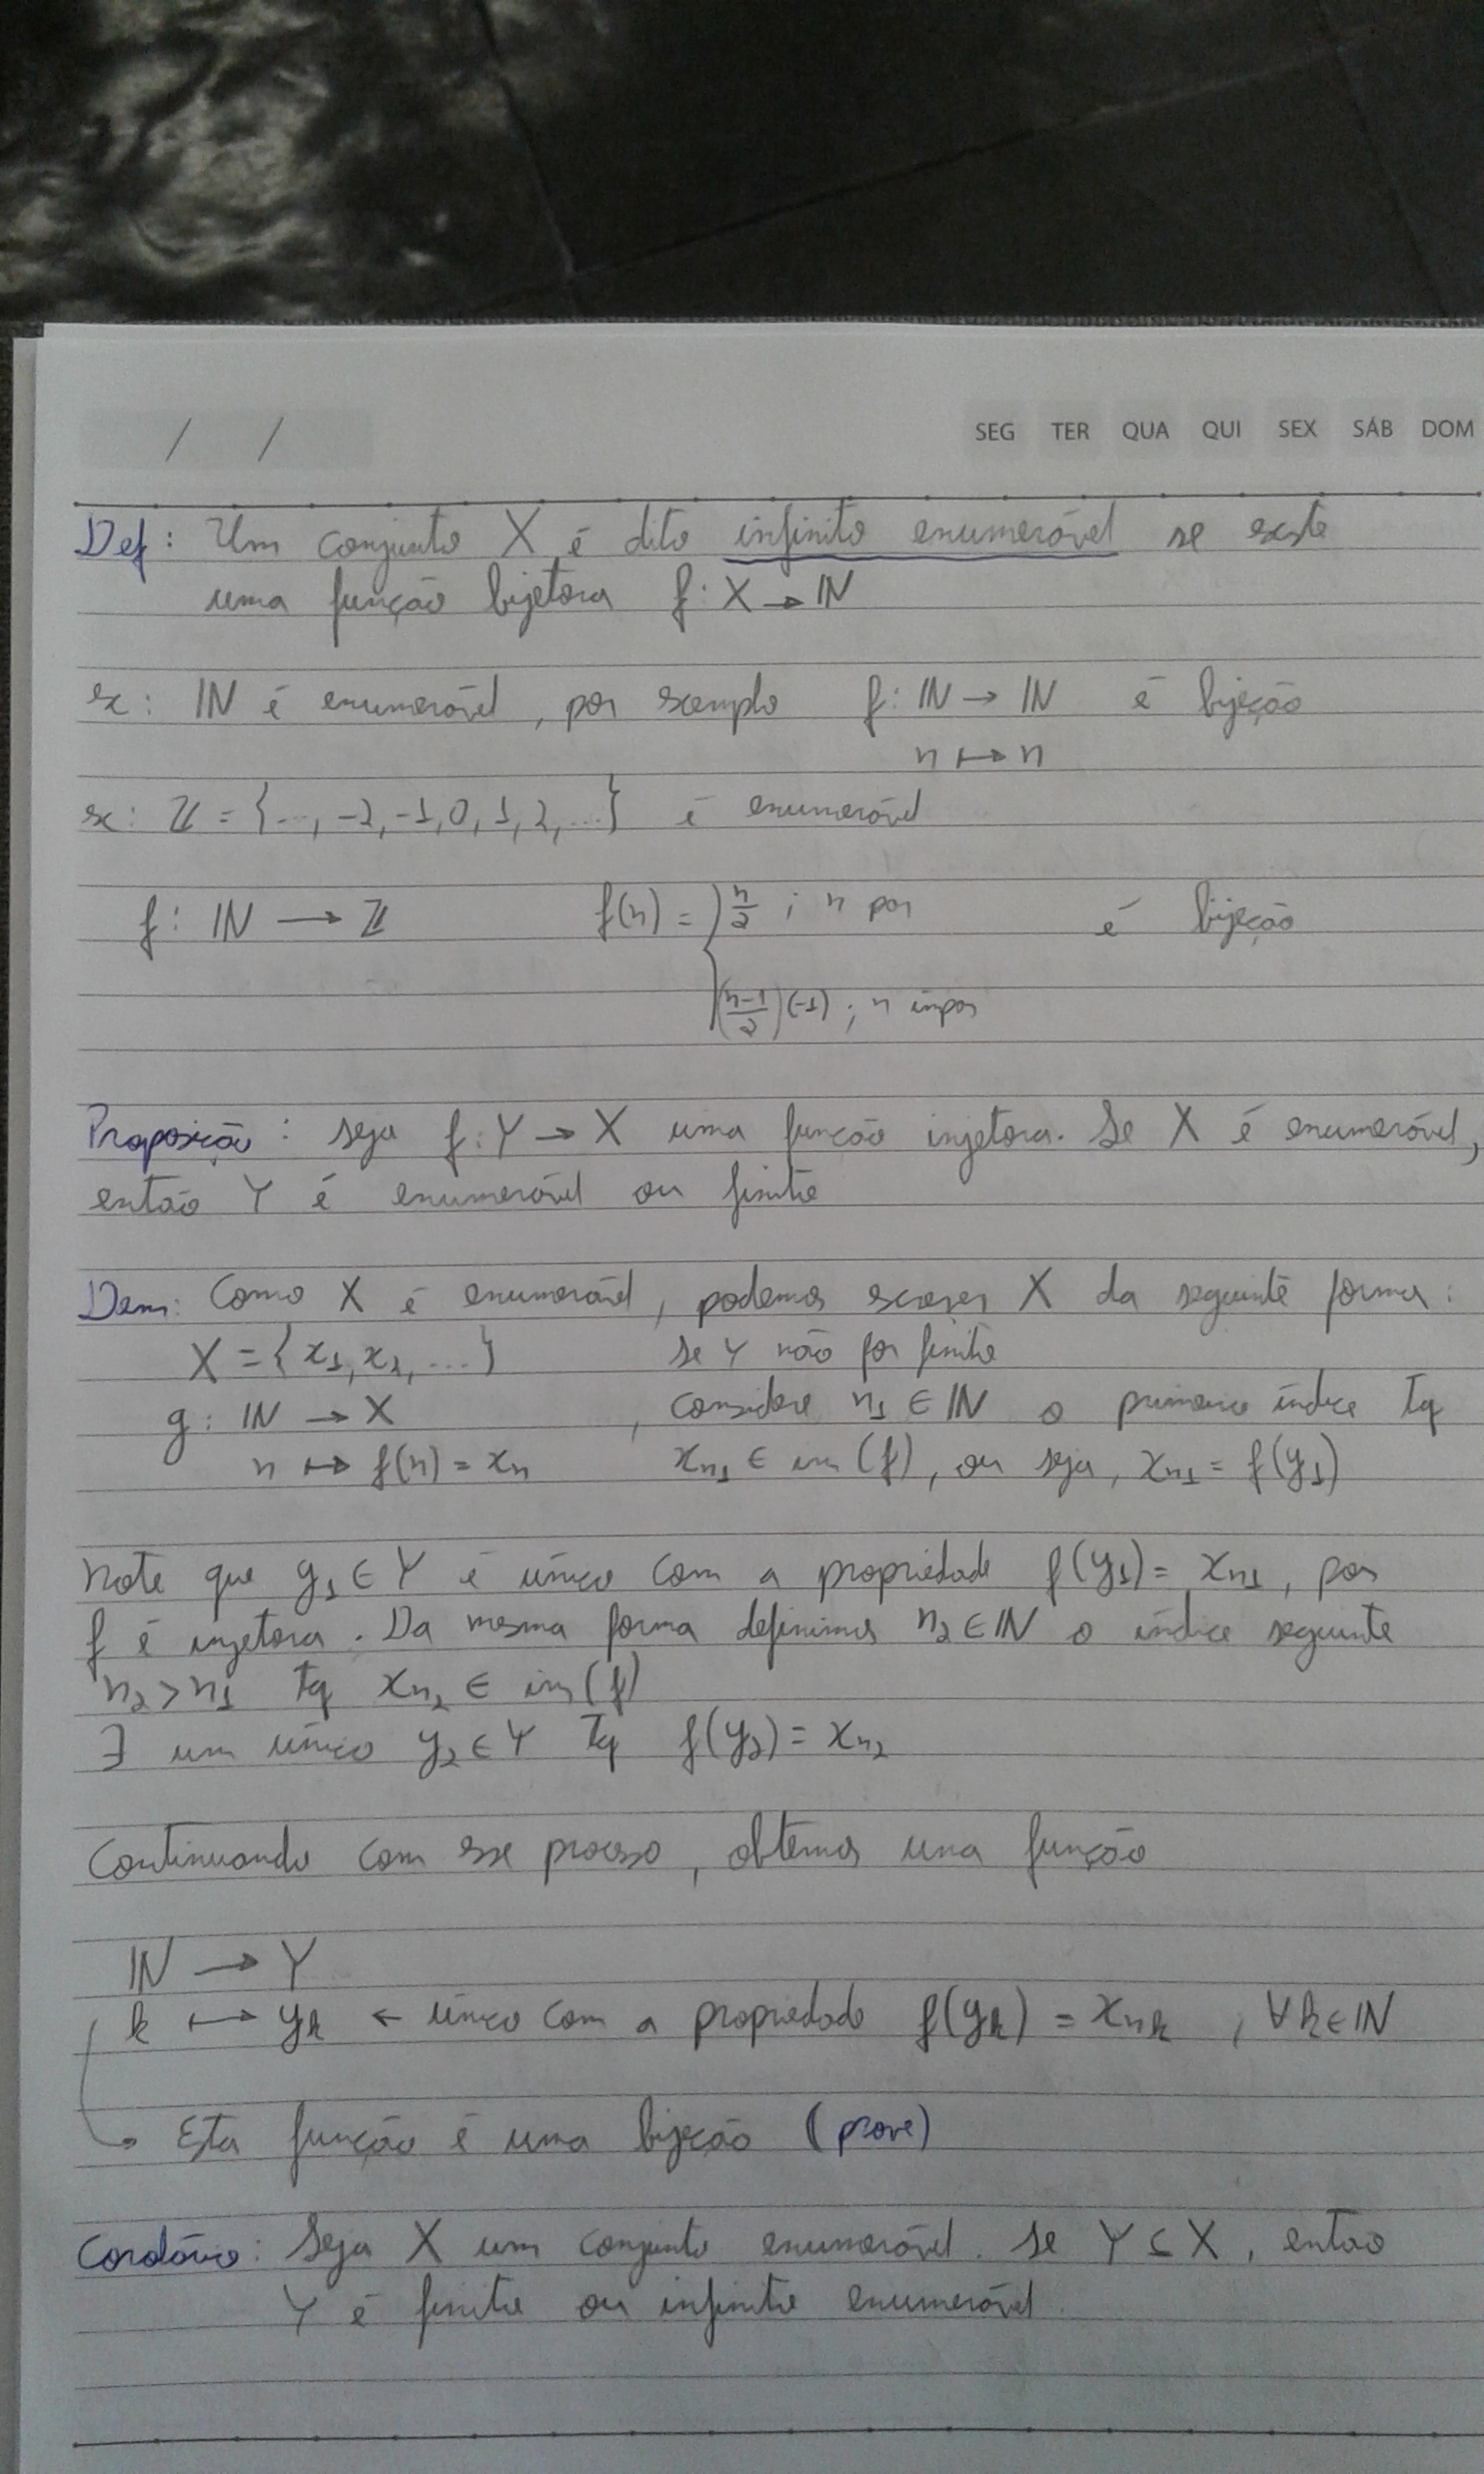 / /
SEG TER QUA QUI SEX SÁB DOM
Def: Um conjunto X é dito infinito enumerável se existe
uma função bijetora f: X → ℕ
ex: ℕ é enumerável, por exemplo f: ℕ → ℕ é bijeção
n ↦ n
ex: ℤ = {..., -2, -1, 0, 1, 2, ...} é enumerável
f: ℕ → ℤ f(n) = { n/2 ; n par é bijeção
((n-1)/2)(-1) ; n ímpar
Proposição: seja f: Y → X uma função injetora. Se X é enumerável,
então Y é enumerável ou finito
Dem: Como X é enumerável, podemos escrever X da seguinte forma:
X = {x₁, x₂, ...} se Y não for finito
g: ℕ → X , considere n₁ ∈ ℕ o primeiro índice tq
n ↦ f(n) = xₙ xₙ₁ ∈ im(f), ou seja, xₙ₁ = f(y₁)
Note que y₁ ∈ Y é único com a propriedade f(y₁) = xₙ₁, pois
f é injetora. Da mesma forma definimos n₂ ∈ ℕ o índice seguinte
n₂ > n₁ tq xₙ₂ ∈ im(f)
∃ um único y₂ ∈ Y tq f(y₂) = xₙ₂
Continuando com esse processo, obtemos uma função
ℕ → Y
k ↦ yₖ ← único com a propriedade f(yₖ) = xₙₖ , ∀k∈ℕ
→ Esta função é uma bijeção (prove)
Corolário: Seja X um conjunto enumerável. Se Y ⊆ X, então
Y é finito ou infinito enumerável.